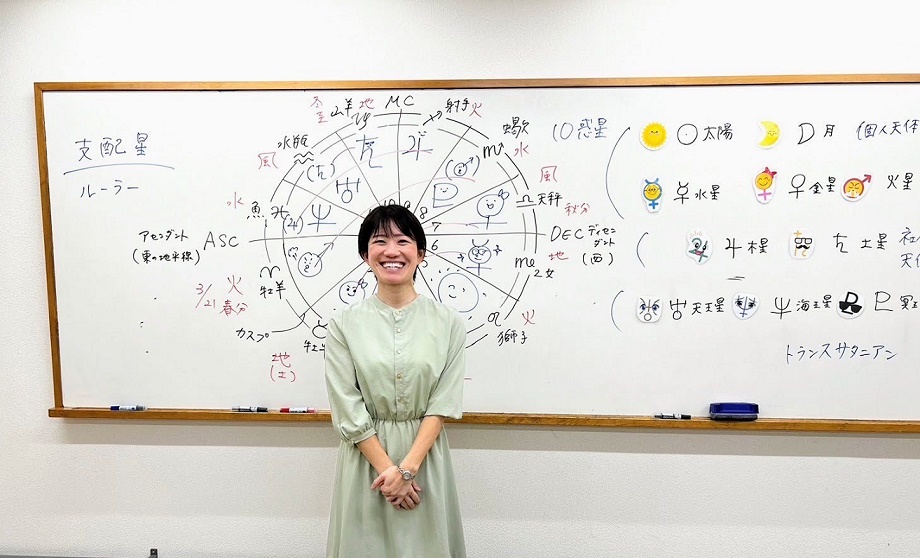 支配星
ルーラー
MC
冬至
山羊
地
射手
火
水瓶
風
蠍
水
魚
水
風
天秤
秋分
アセンダント
(東の地平線)
ASC
DEC
ディセンダント
(西)
地
乙女
火
3/21
春分
牡羊
カスプ
地
(土)
火
獅子
7
6
10惑星
太陽
月
(個人天体
水星
金星
火星
木星
土星
天王星
海王星
トランスサタニアン